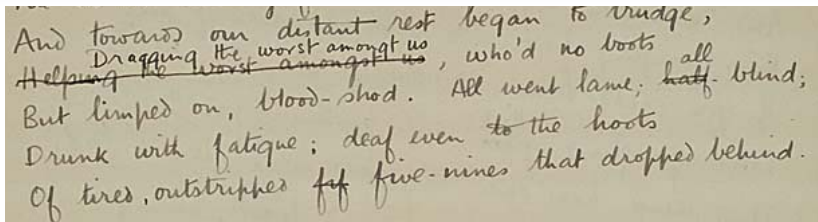 And towards our distant rest began to trudge,
Dragging the worst amongt us
Helping the worst amongst us, who'd no boots
But limped on, blood-shod. All went lame; half all blind;
Drunk with fatigue; deaf even to the hoots
Of tired, outstripped fif five-nines that dropped behind.